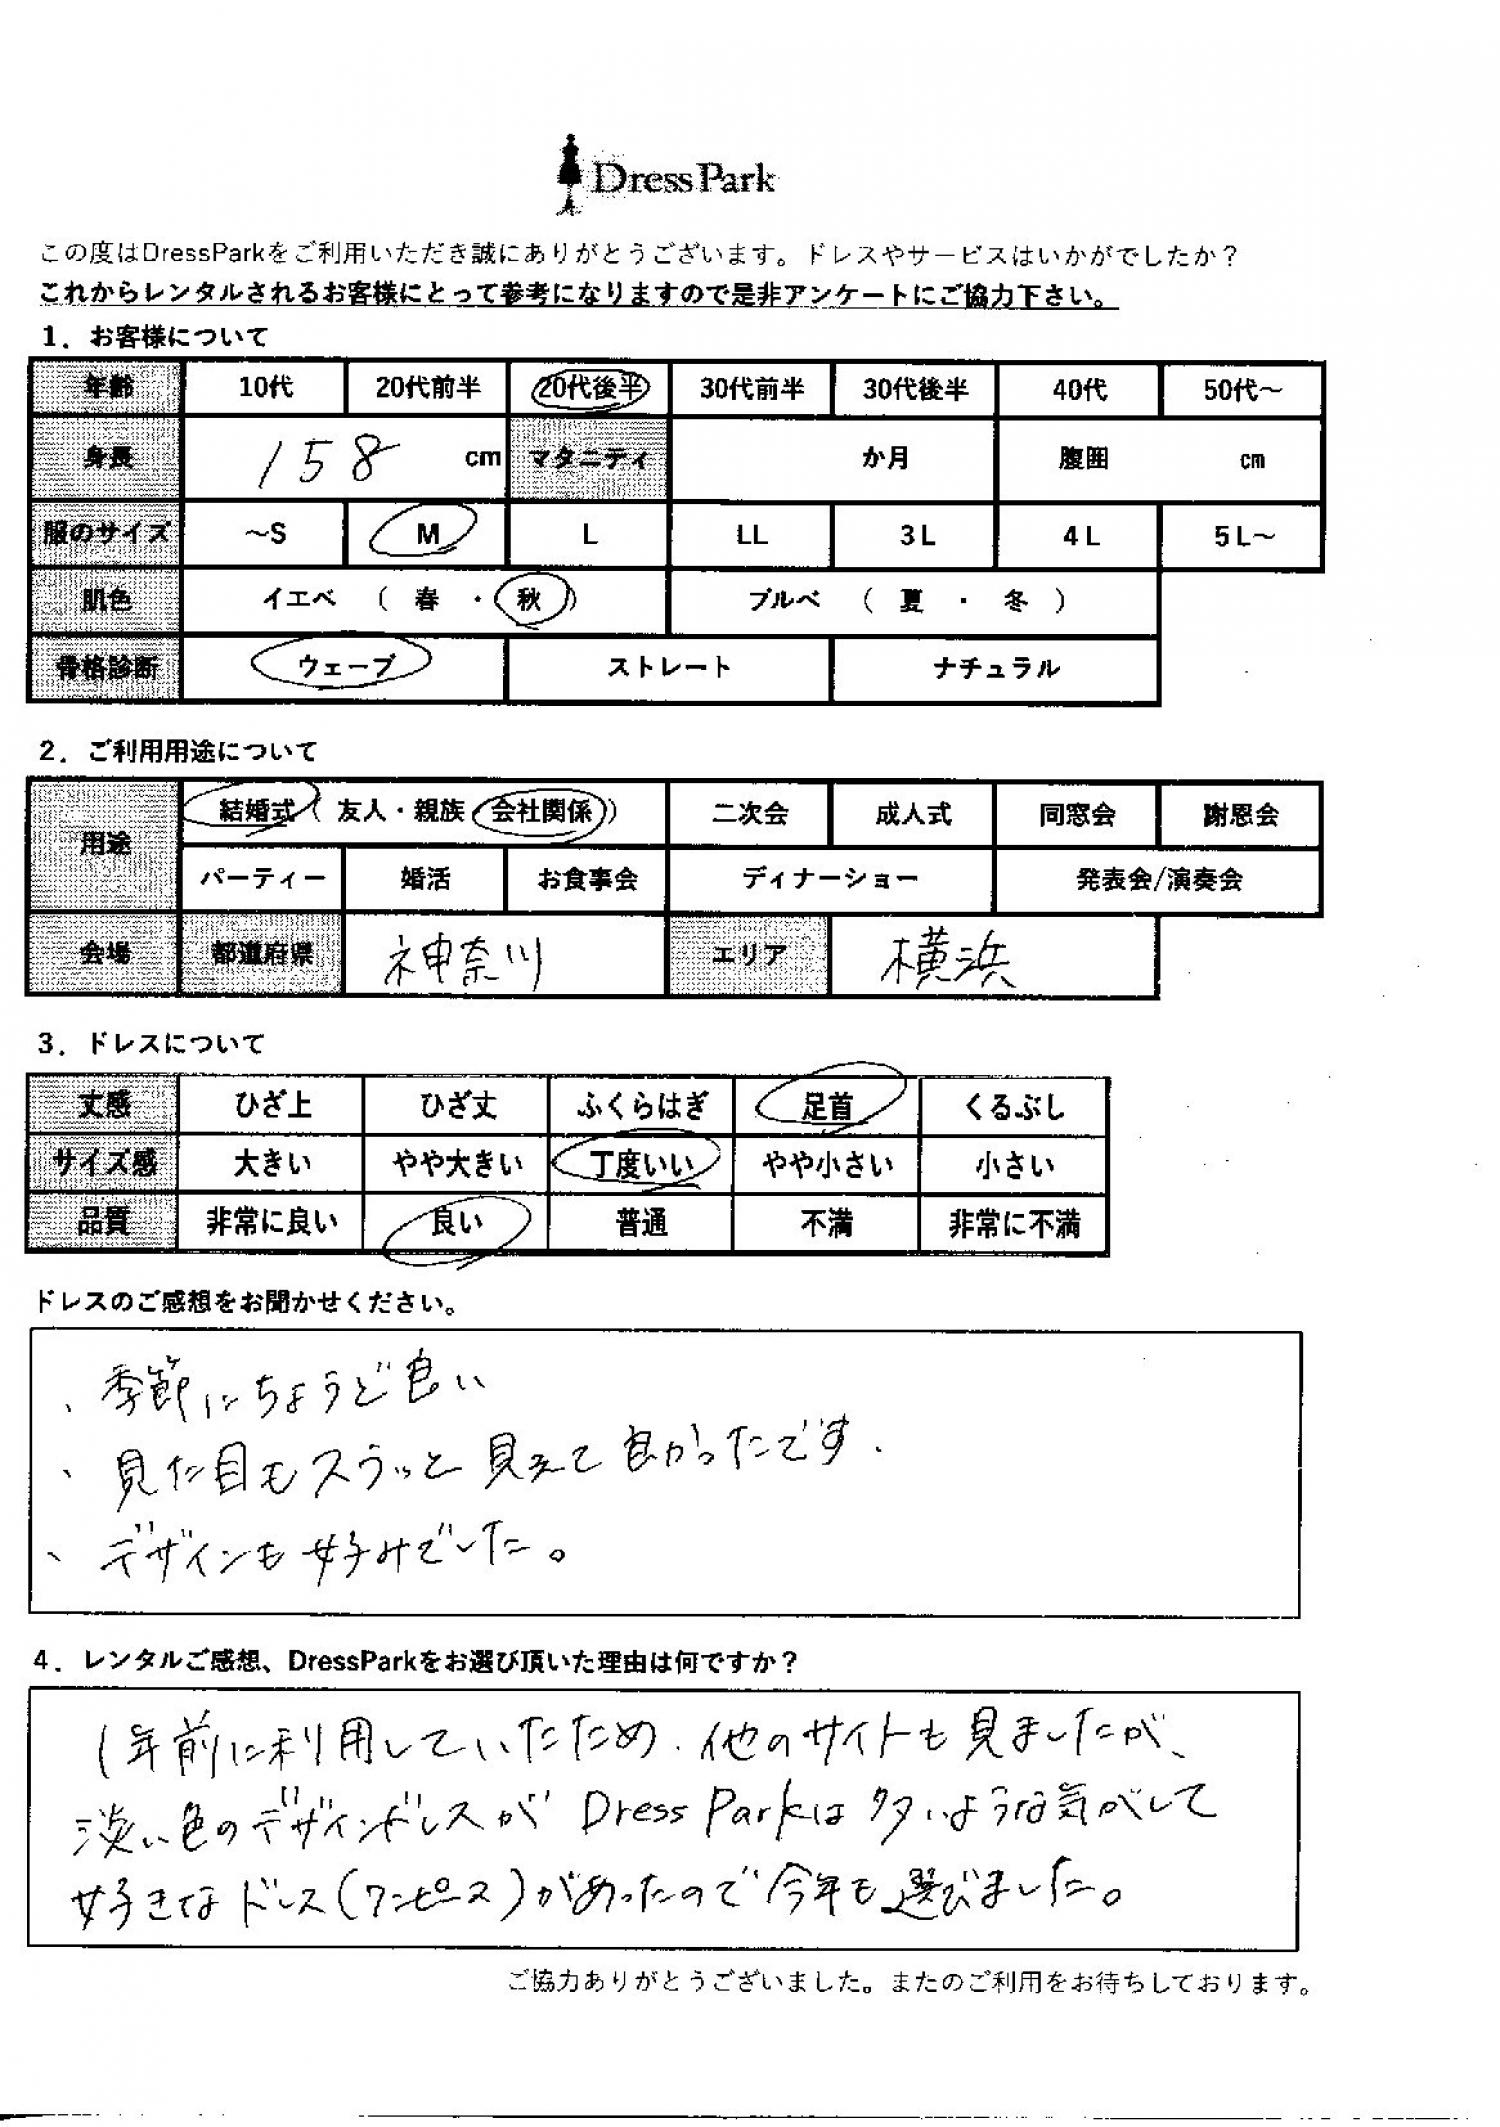 DressPark
この度はDressParkをご利用いただき誠にありがとうございます。ドレスやサービスはいかがでしたか？
これからレンタルされるお客様にとって参考になりますので是非アンケートにご協力下さい。
1．お客様について
年齢 10代 20代前半 20代後半 30代前半 30代後半 40代 50代～
身長 158 cm マタニティ か月 腹囲 cm
服のサイズ ～S M L LL 3L 4L 5L～
肌色 イエベ （ 春 ・ 秋 ） ブルベ （ 夏 ・ 冬 ）
骨格診断 ウェーブ ストレート ナチュラル
2．ご利用用途について
用途 結婚式（ 友人・親族・会社関係 ） 二次会 成人式 同窓会 謝恩会
パーティー 婚活 お食事会 ディナーショー 発表会/演奏会
会場 都道府県 神奈川 エリア 横浜
3．ドレスについて
丈感 ひざ上 ひざ丈 ふくらはぎ 足首 くるぶし
サイズ感 大きい やや大きい 丁度いい やや小さい 小さい
品質 非常に良い 良い 普通 不満 非常に不満
ドレスのご感想をお聞かせください。
、季節にちょうど良い
、見た目もスラッと見えて良かったです.
、デザインも好みでした。
4．レンタルご感想、DressParkをお選び頂いた理由は何ですか？
1年前に利用していたため、他のサイトも見ましたが、
淡い色のデザインドレスが Dress Parkは多いような気がして
好きなドレス(ワンピース)があったので今年も選びました。
ご協力ありがとうございました。またのご利用をお待ちしております。